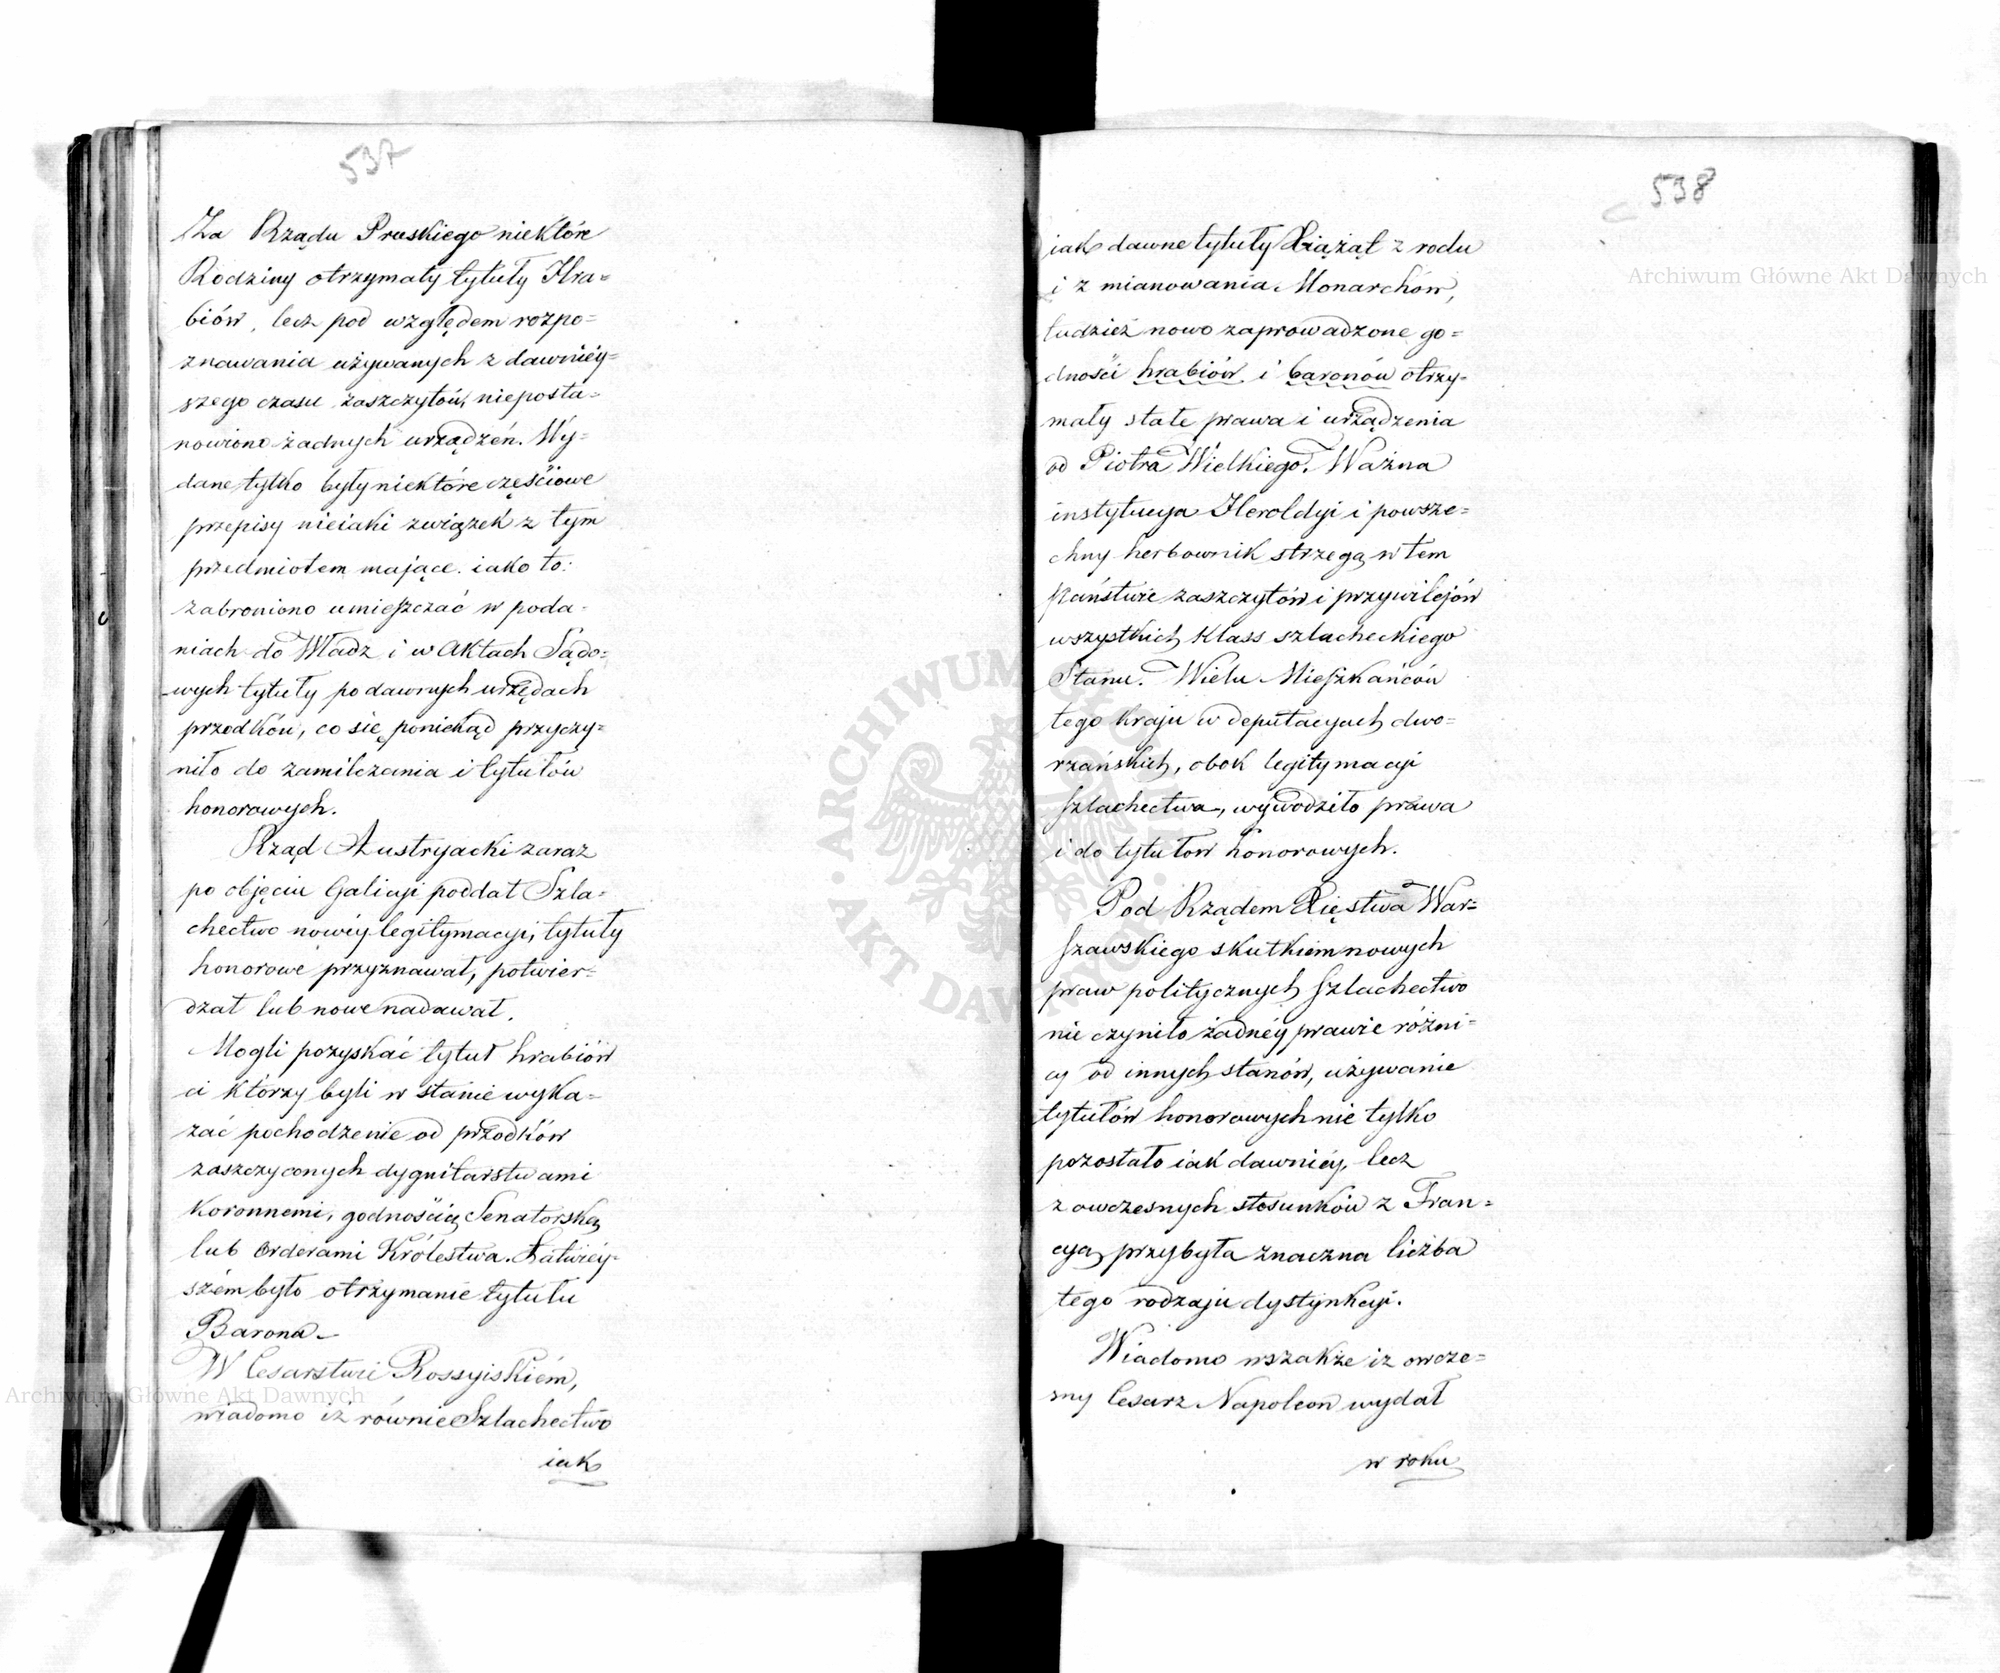 537
Za Rządu Pruskiego niektóre
Rodziny otrzymały tytuły Hra=
biów, lecz pod względem rozpo=
znawania używanych z dawniéy=
szego czasu zaszczytów, nieposta=
nowiono żadnych urządzeń. Wy=
dane tylko były niektóre częściowe
przepisy nieiaki związek z tym
przedmiotem mające. iako to:
zabroniono umieszczać w poda=
niach do Władz i w Aktach Sądo=
wych tytuły po dawnych urzędach
przodków, co się poniekąd przyczy=
niło do zamilczenia i tytułów
honorowych.
Rząd Austryacki zaraz
po objęciu Galicyi poddał Szla=
chectwo nowéy legitymacyi, tytuły
honorowe przyznawał, potwier=
dzał lub nowe nadawał.
Mogli pozyskać tytuł hrabiów
ci którzy byli w stanie wyka=
zać pochodzenie od przodków
zaszczyconych dygnitarstwami
Koronnemi, godnością Senatorską
lub Orderami Królestwa. Łatwiéy=
szém było otrzymanie tytułu
Barona.
W Cesarstwie Rossyiskiém,
wiadomo iż równie Szlachectwo
iak
538
iak dawne tytuły Xiążąt z rodu
i z mianowania Monarchów,
tudzież nowo zaprowadzone go=
dności hrabiów i baronów otrzy=
mały stałe prawa i urządzenia
od Piotra Wielkiego. Ważna
instytucya Heroldyi i powsze=
chny herbownik strzegą w tem
Państwie zaszczytów i przywilejów
wszystkich klass szlacheckiego
Stanu. Wielu Mieszkańców
tego kraju w deputacyach dwo=
rzańskich, obok legitymacyi
szlachectwa, wywodziło prawa
i do tytułów honorowych.
Pod Rządem Xięstwa War=
szawskiego skutkiem nowych
praw politycznych szlachectwo
nie czyniło żadnéy prawie różni=
cy od innych stanów, używanie
tytułów honorowych nie tylko
pozostało iak dawniéy, lecz
z owczesnych stosunków z Fran=
cyą przybyła znaczna liczba
tego rodzaju dystynkcyi.
Wiadomo wszakże iż owcze=
sny Cesarz Napoleon wydał
w roku
Archiwum Główne Akt Dawnych
Archiwum Główne Akt Dawnych
ARCHIWUM GŁÓWNE AKT DAWNYCH